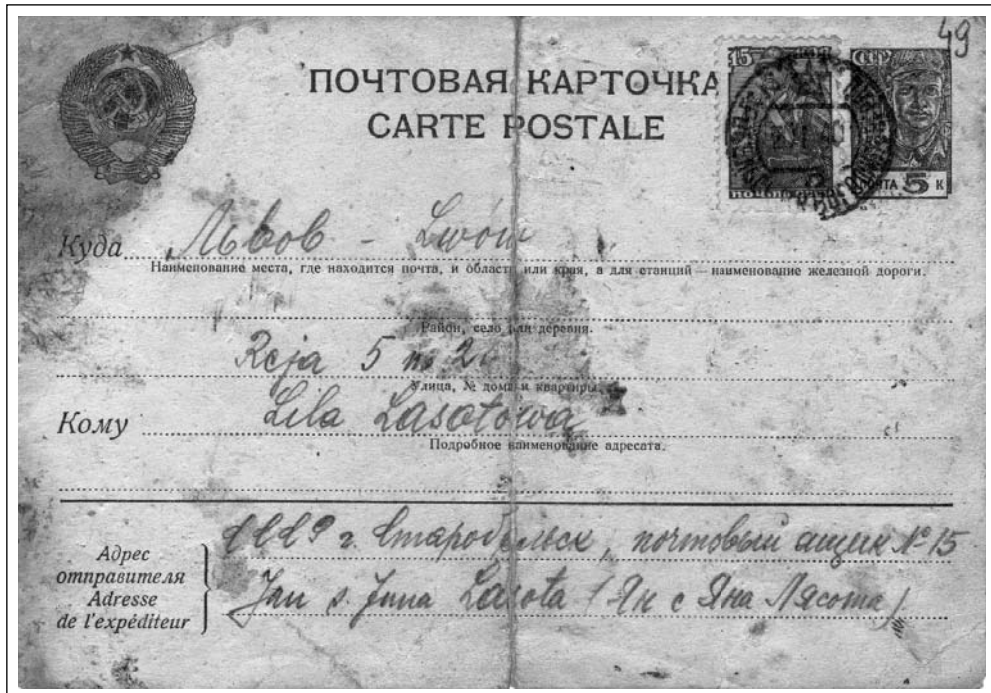 49
ПОЧТОВАЯ КАРТОЧКА
CARTE POSTALE
15
ПОЧТА 5 К
Куда Львов - Lwów
Наименование места, где находится почта, и области или края, а для станций — наименование железной дороги.
Район, село или деревня.
Reja 5 m 2
Улица, № дома и квартиры.
Кому Lila Lasotowa
Подробное наименование адресата.
Адрес
отправителя
Adresse
de l'expéditeur
СССР г. Старобельск, почтовый ящик № 15
Jan s. Jana Lasota (Ян с Яна Лясота)